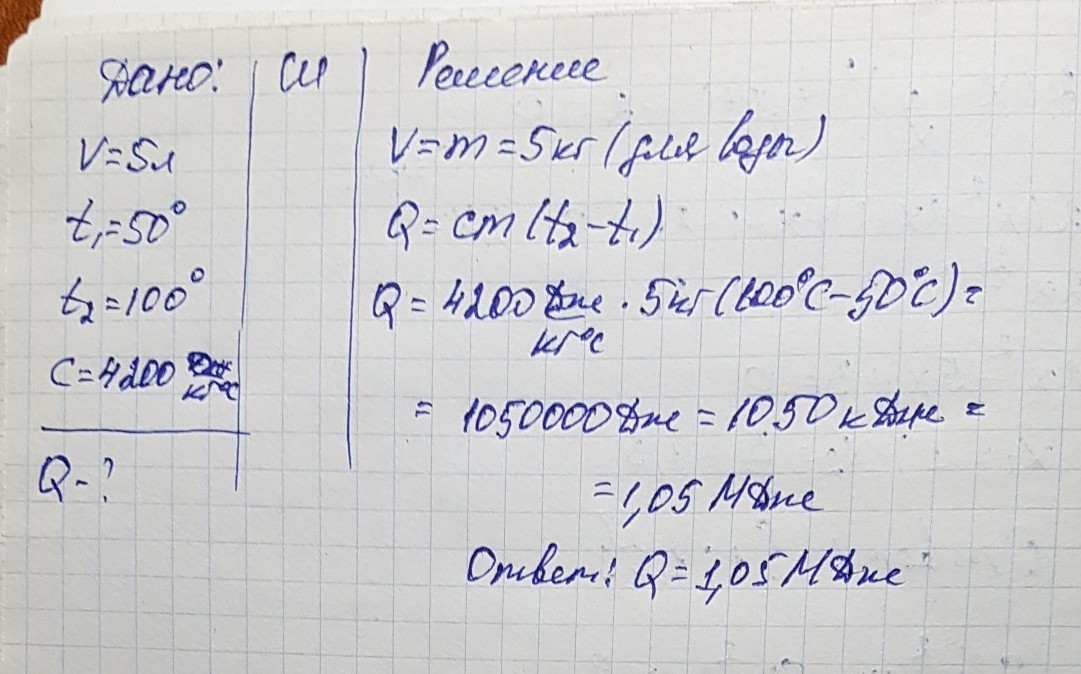 Дано:
V=5л
t₁=50°
t₂=100°
C=4200 Дж/кг°С
Q-?
СИ
Решение
V=m=5кг (для воды)
Q=cm(t₂-t₁)
Q=4200 Дж/кг°С · 5кг(100°С-50°С)=
= 1050000 Дж = 1050 кДж =
=1,05 МДж
Ответ: Q=1,05 МДж